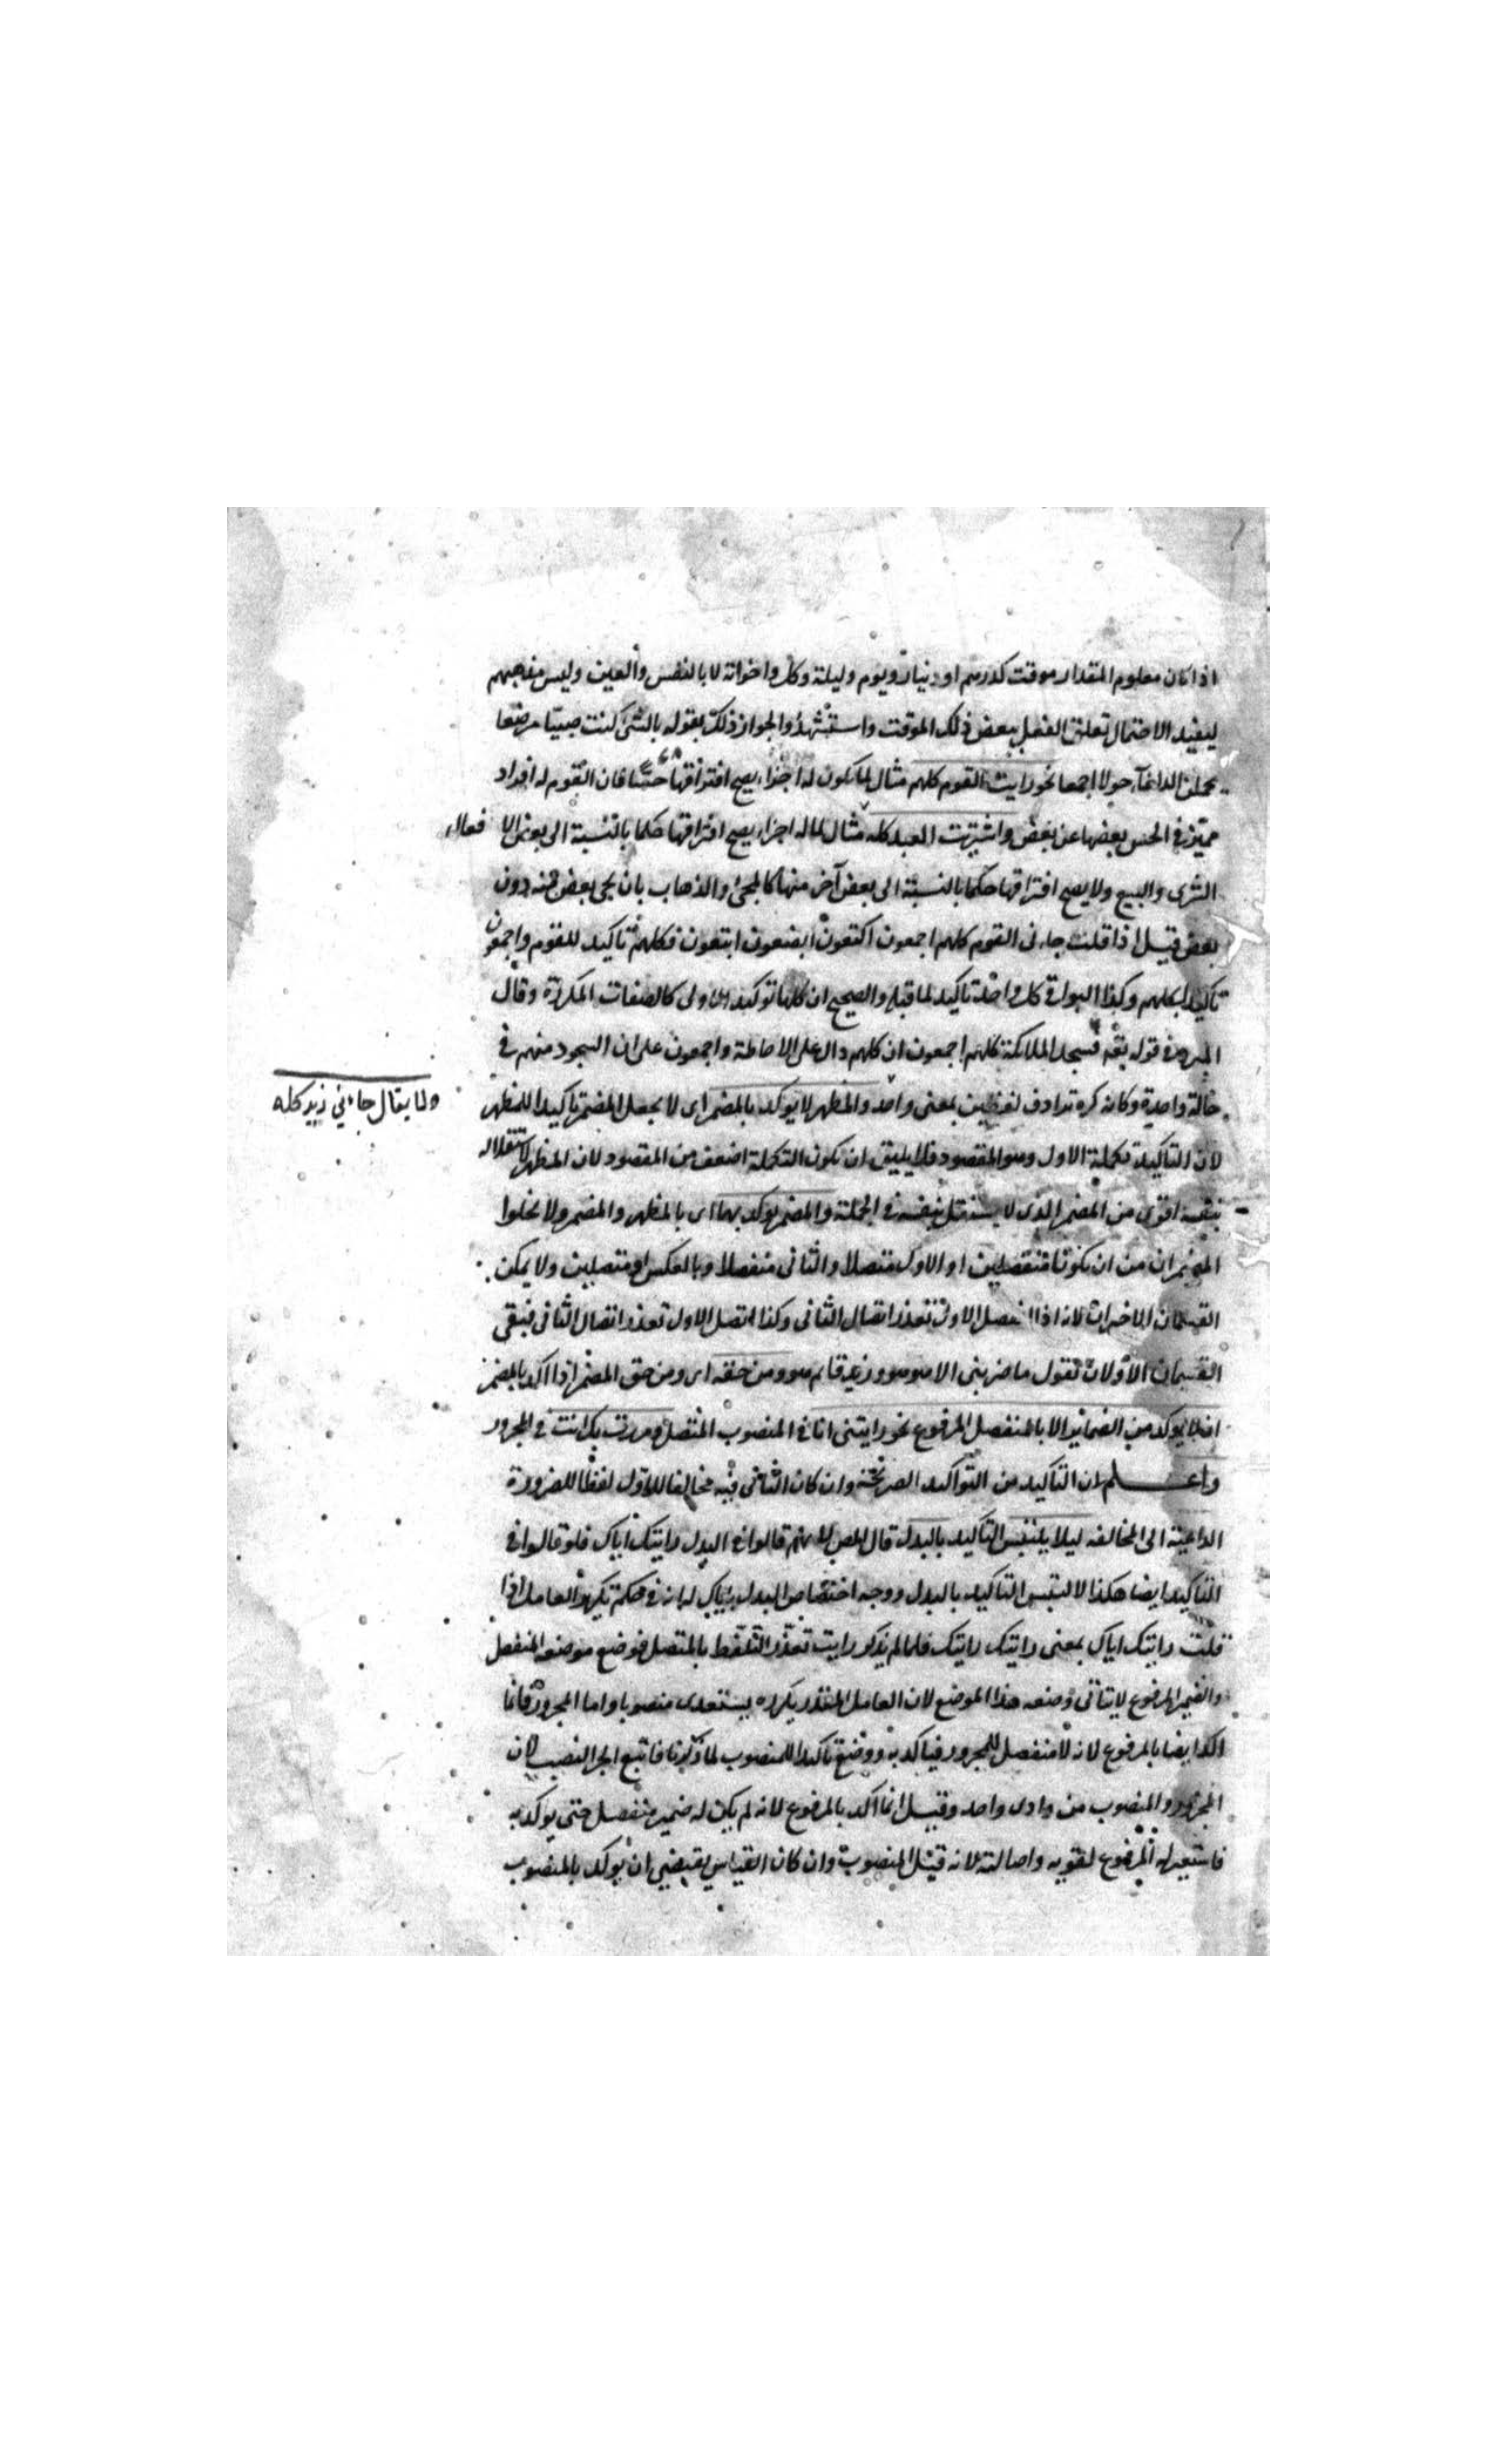 اذا كان معلوم المقدار موقت كدرهم او دينار ويوم وليلة وكل واخواته لا بالنفس والعين وليس مذهبهم
لبعيد الاحتمال تعلق الفعل ببعض ذلك الموقت واستشهدوا لجواز ذلك بقوله يا ليتنى كنت صبيا مرضعا
تحملنى الذلفاء حولا اجمعا نحو رايت القوم كلهم مثال لما يكون له اجزاء يصح افتراقها حسا فان القوم له افراد
مميزة في الحس بعضها عن بعض واشتريت العبد كله مثال لما له اجزاء يصح افتراقها حكما بالنسبة الى بعض الافعال
الشرى والبيع ولا يصح افتراقها حكما بالنسبة الى بعض آخر منها كالمجئ والذهاب بان يجئ بعض منه دون
بعض قيل اذا قلت جاءنى القوم كلهم اجمعون اكتعون ابصعون ابتعون فكلهم تأكيد للقوم واجمعون
تأكيد لكلهم وكذا البواقى كل واحد تأكيد لما قبله والصحيح ان كلها توكيد للاولى كالصفات المكررة وقال
المبرد في قوله تعه فسجد الملائكة كلهم اجمعون ان كلهم دال على الاحاطة واجمعون على ان السجود منهم في
حالة واحدة وكانه كره ترادف لفظين بمعنى واحد والمظهر لا يوكد بالمضمر اى لا يجعل المضمر تأكيدا للمظهر
ولا يقال جاءني زيد كله
لان التأكيد تكملة الاول وهو المقصود فلا يليق ان تكون التكملة اضعف من المقصود لان المظهر لاستقلاله
بنفسه اقوى من المضمر الذى لا يستقل بنفسه في الجملة والمضمر يوكد بهما اى بالمظهر والمضمر ولا يخلوا
المضمران من ان يكونا منفصلين او الاول متصلا والثانى منفصلا وبالعكس او متصلين ولا يمكن
القسمان الاخيران لانه اذا انفصل الاول تعذر اتصال الثانى وكذا اتصل الاول تعذر اتصال الثانى فبقى
القسمان الاولان تقول ما ضربنى الا هو هو وزيد قائم هو ومن حقه اى ومن حق المضمر اذا اكد بالمضمر
ان لا يوكد من الضمائر الا بالمنفصل المرفوع نحو رايتنى انا في المنصوب المتصل ومررت بك انت في المجرور
واعلم ان التأكيد من التواكيد الصريحة وان كان الثانى فيه مخالفا للاول لفظا للضرورة
الداعية الى المخالفه ليلا يلتبس التأكيد بالبدل قال المص انهم قالوا في البدل رايتك اياك فلو قالوا في
التأكيد ايضا هكذا لالتبس التأكيد بالبدل ووجه اختصاص البدل باياك لانه في حكم تكرير العامل اذا
قلت رايتك اياك بمعنى رايتك رايتك فلما لم يذكر رايت تعذر التلفظ بالمتصل فوضع موضعه المنفصل
والضمير المرفوع لا يتأتى وضعه هذا الموضع لان العامل المقدر تكرره يستعدى منصوبا واما المجرور فانما
اكد ايضا بالمرفوع لانه لا منفصل للمجرور فيأكد به ووضع تأكيدا للمنصوب لما ذكرنا فاتبع الجر النصب لان
المجرور والمنصوب من وادى واحد وقيل انما اكد بالمرفوع لانه لم يكن له ضمير منفصل حتى يوكد به
فاستعير له المرفوع لقوته واصالته لانه قبل المنصوب وان كان القياس يقتضي ان يوكد بالمنصوب